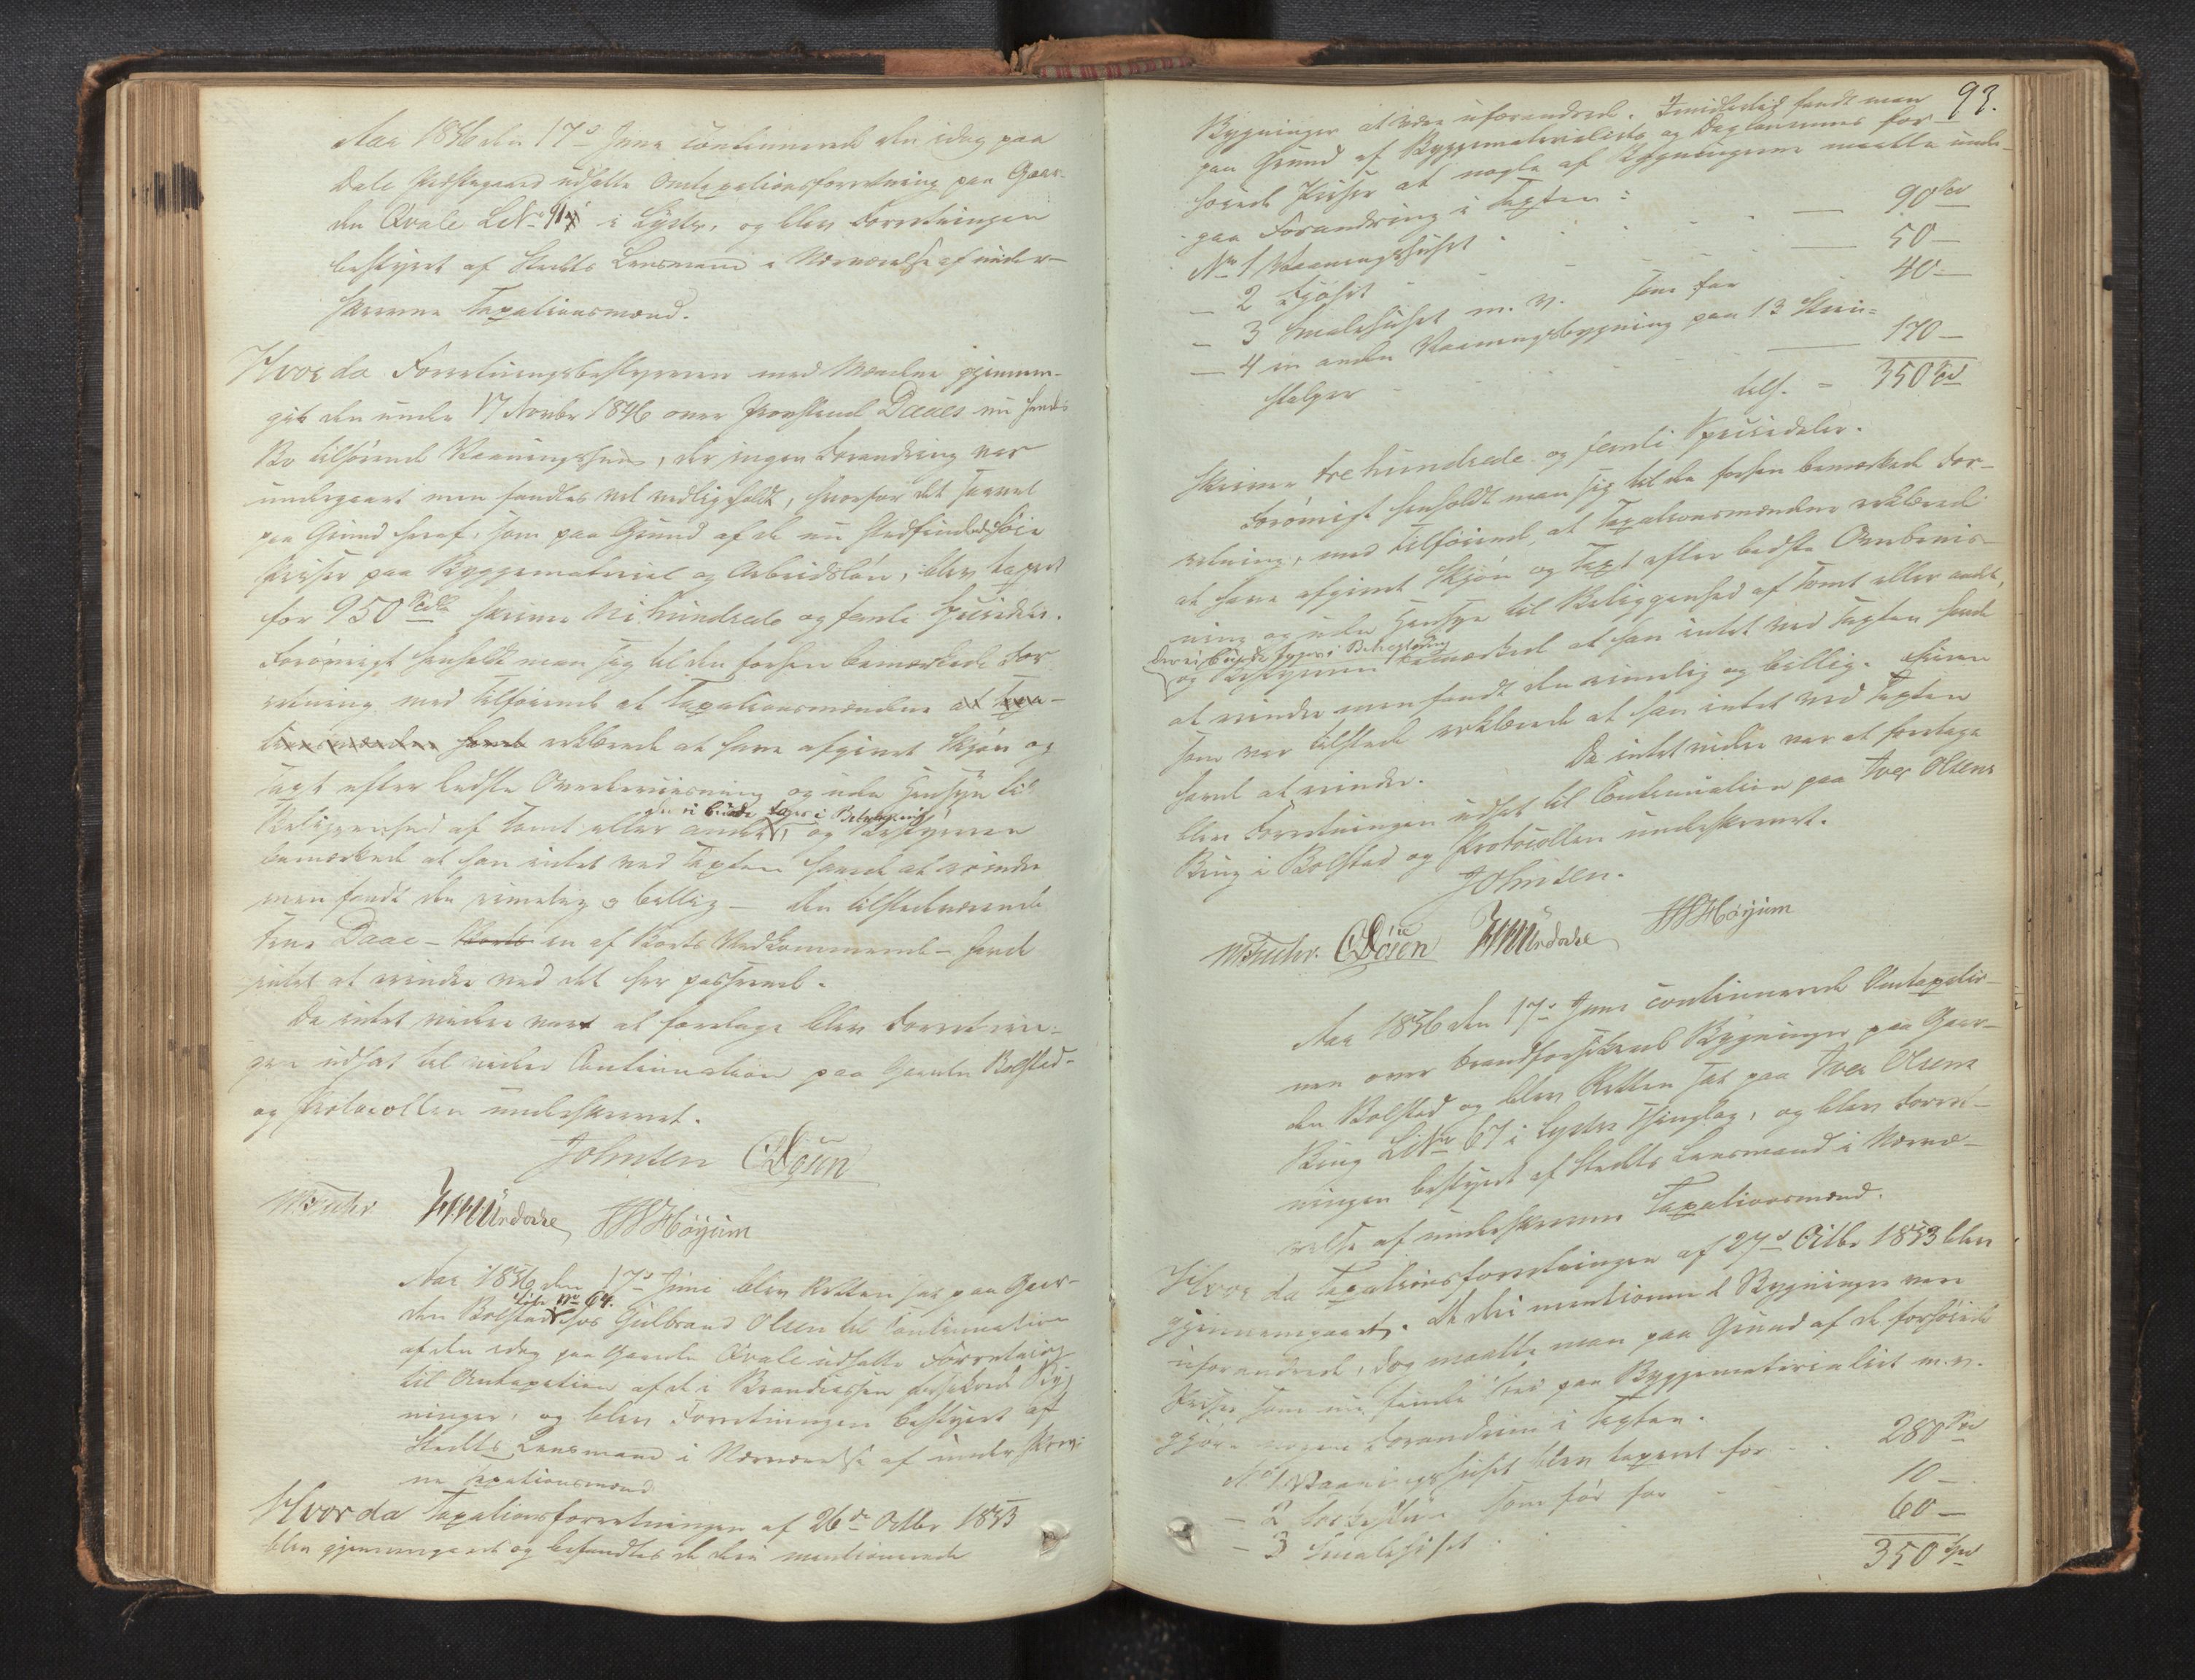 Aar 1856 den 17de Juni continuerede den idag paa
Dale Præstegaard udsatte Omtaxationsforretning paa Gaar-
den Qvale LNo 91 i Lyster, og blev Forretningen
bestyret af Stedets Lensmand i Nærværelse af under-
skrevne Taxationsmænd.
Hvor da Forretningsbestyreren med Mændene gjennem-
gik den under 17 Novbr 1846 over Provstinde Daaes nu hendes
Bo tilhørende Vaaningshuus, der ingen Forandring var
undergaaet men fandtes vel vedligeholdt, hvorfor det saavel
paa Grund heraf, som paa Grund af de nu stedfindende høie
Priser paa Byggematerial og Arbeidsløn, blev taxeret
for 950 Spd skriver Ni hundrede og femti Speciedaler.
Forøvrigt henholdt man sig til den forhen bemærkede For-
retning med Tilføiende at Taxationsmændene at Taxa-
tionsmændene havde erklærede at have afgivet Skjøn og
Taxt efter bedste Overbeviisning og uden Hensyn til
der ei burde tages i Betragtning
Beliggenhed af Tomt eller andet, og Bestyreren
bemærkede at han intet ved Taxten havde at erindre
men fandt den rimelig og billig – den tilstedeværende
Frue Daae – Boets en af Boets Vedkommende – havde
intet at erindre ved det her passerede.
Da intet videre var at foretage blev Forretnin-
gen udsat til videre Continuation paa Gaarden Bolstad
og Protocollen underskrevet.
Johnsen CDösen
MFuhr HMUrdahl HHHöyum
Aar 1856 den 17de Juni blev Retten sat paa Gaar-
Löbe No 64.
den Bolstad hos Gulbrand Olsen til Continuation
af den idag paa Gaarden Qvale udsatte Forretning
til Omtaxation af de i Brandcassen forsikrede Byg-
ninger, og blev Forretningen bestyret af
Stedets Lensmand i Nærværelse af underskrev-
ne Taxationsmænd
Hvor da Taxationsforretningen af 26de Octbr 1853
blev gjennemgaaet og befandtes de deri mentionerede
93.
Bygninger at være uforandrede. Imidlertid fandt man
paa Grund af Byggematerialets og Daglønnens for-
høiede Priser at nogle af Bygningerne maatte under-
gaa Forandring i Taxten:
No 1 Vaaningshuset – 90 Spd
– 2 Fjøset – 50 –
– 3 Smalehuset m. v. som før 40 –
– 4 en anden Vaaningsbygning paa 13 Steen-
stolper – 170 –
tils. = 350 Spd
skriver tre hundrede og femti Speciedaler.
Forøvrigt henholdt man sig til den forhen bemærkede For-
retning, med Tilføiende, at Taxationsmændene erklærede
at have afgivet Skjøn og Taxt efter bedste Overbeviis-
ning og uden Hensyn til Beliggenhed af Tomt eller andet,
der ei burde tages i Betragtning
og Bestyreren bemærkede at han intet ved Taxten havde
at erindre men fandt den rimelig og billig. Eieren
som var tilstede erklærede at han intet ved Taxten
havde at erindre. Da intet videre var at foretage
blev Forretningen udsat til Continuation paa Iver Olsens
Brug i Bolstad og Protocollen underskrevet.
Johnsen.
MFuhr. CDösen HMUrdahl HHHöyum
Aar 1856 den 17de Juni continuerede Omtaxatio-
nen over brandforsikrede Bygninger paa Gaar-
den Bolstad og blev Retten sat paa Iver Olsens
Brug LNo 67 i Lysters Thinglag, og blev Forret-
ningen bestyret af Stedets Lensmand i Nærvæ-
relse af underskrevne Taxationsmænd.
Hvor da Taxationsforretningen af 27de Octbr 1853 blev
gjennemgaaet. De deri mentionerede Bygninger vare
uforandrede, dog maatte man paa Grund af de forhøiede
Priser som nu finde Sted paa Byggematerialet m. v.
gjøre nogen Forandring i Taxten.
No 1 Vaaningshuset blev taxeret for 280 Spd
– 2 som før for 10 –
– 3 Smalehuset 60 –
350 Spd